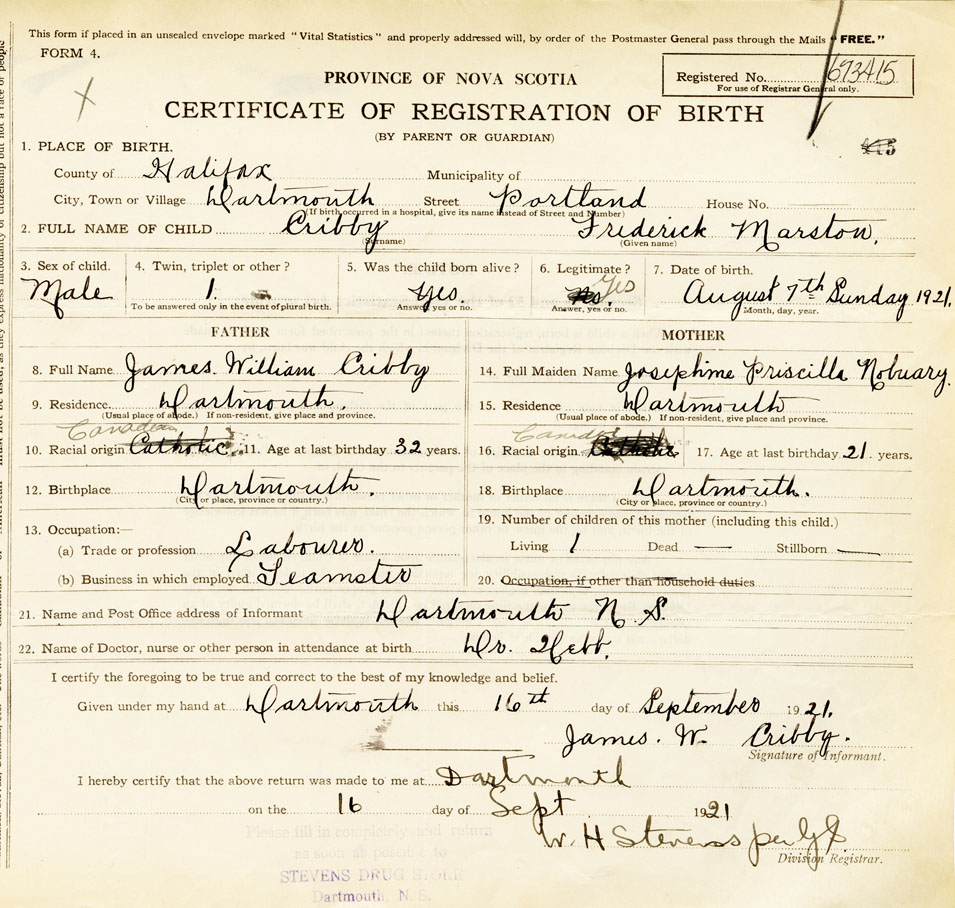 This form if placed in an unsealed envelope marked "Vital Statistics" and properly addressed will, by order of the Postmaster General pass through the Mails "FREE."
FORM 4.
PROVINCE OF NOVA SCOTIA
Registered No. 673415
For use of Registrar General only.
CERTIFICATE OF REGISTRATION OF BIRTH
(BY PARENT OR GUARDIAN)
1. PLACE OF BIRTH.
County of Halifax Municipality of
City, Town or Village Dartmouth Street Portland House No.
(If birth occurred in a hospital, give its name instead of Street and Number)
2. FULL NAME OF CHILD Cribby Frederick Marston.
(Surname) (Given name)
3. Sex of child. 4. Twin, triplet or other? 5. Was the child born alive? 6. Legitimate? 7. Date of birth.
Male 1. Yes. No. Yes August 7th Sunday 1921.
To be answered only in the event of plural birth. Answer, yes or no. Answer, yes or no. Month, day, year.
FATHER MOTHER
8. Full Name James. William Cribby 14. Full Maiden Name Josephine Priscilla Nobuary.
9. Residence Dartmouth. 15. Residence Dartmouth
(Usual place of abode.) If non-resident, give place and province. (Usual place of abode.) If non-resident, give place and province.
Canadian
10. Racial origin Catholic 11. Age at last birthday 32 years. 16. Racial origin Catholic 17. Age at last birthday 21. years.
12. Birthplace Dartmouth. 18. Birthplace Dartmouth.
(City or place, province or country.) (City or place, province or country.)
13. Occupation:— 19. Number of children of this mother (including this child.)
(a) Trade or profession Labourer. Living 1 Dead — Stillborn —
(b) Business in which employed Teamster 20. Occupation, if other than household duties
21. Name and Post Office address of Informant Dartmouth N. S.
22. Name of Doctor, nurse or other person in attendance at birth Dr. Hebb.
I certify the foregoing to be true and correct to the best of my knowledge and belief.
Given under my hand at Dartmouth this 16th day of September 1921.
James. W. Cribby.
Signature of Informant.
I hereby certify that the above return was made to me at Dartmouth
on the 16 day of Sept 1921
W. H Stevens per
Division Registrar.
Please fill in completely and return
as soon as possible to
STEVENS DRUG STORE
Dartmouth, N. S.